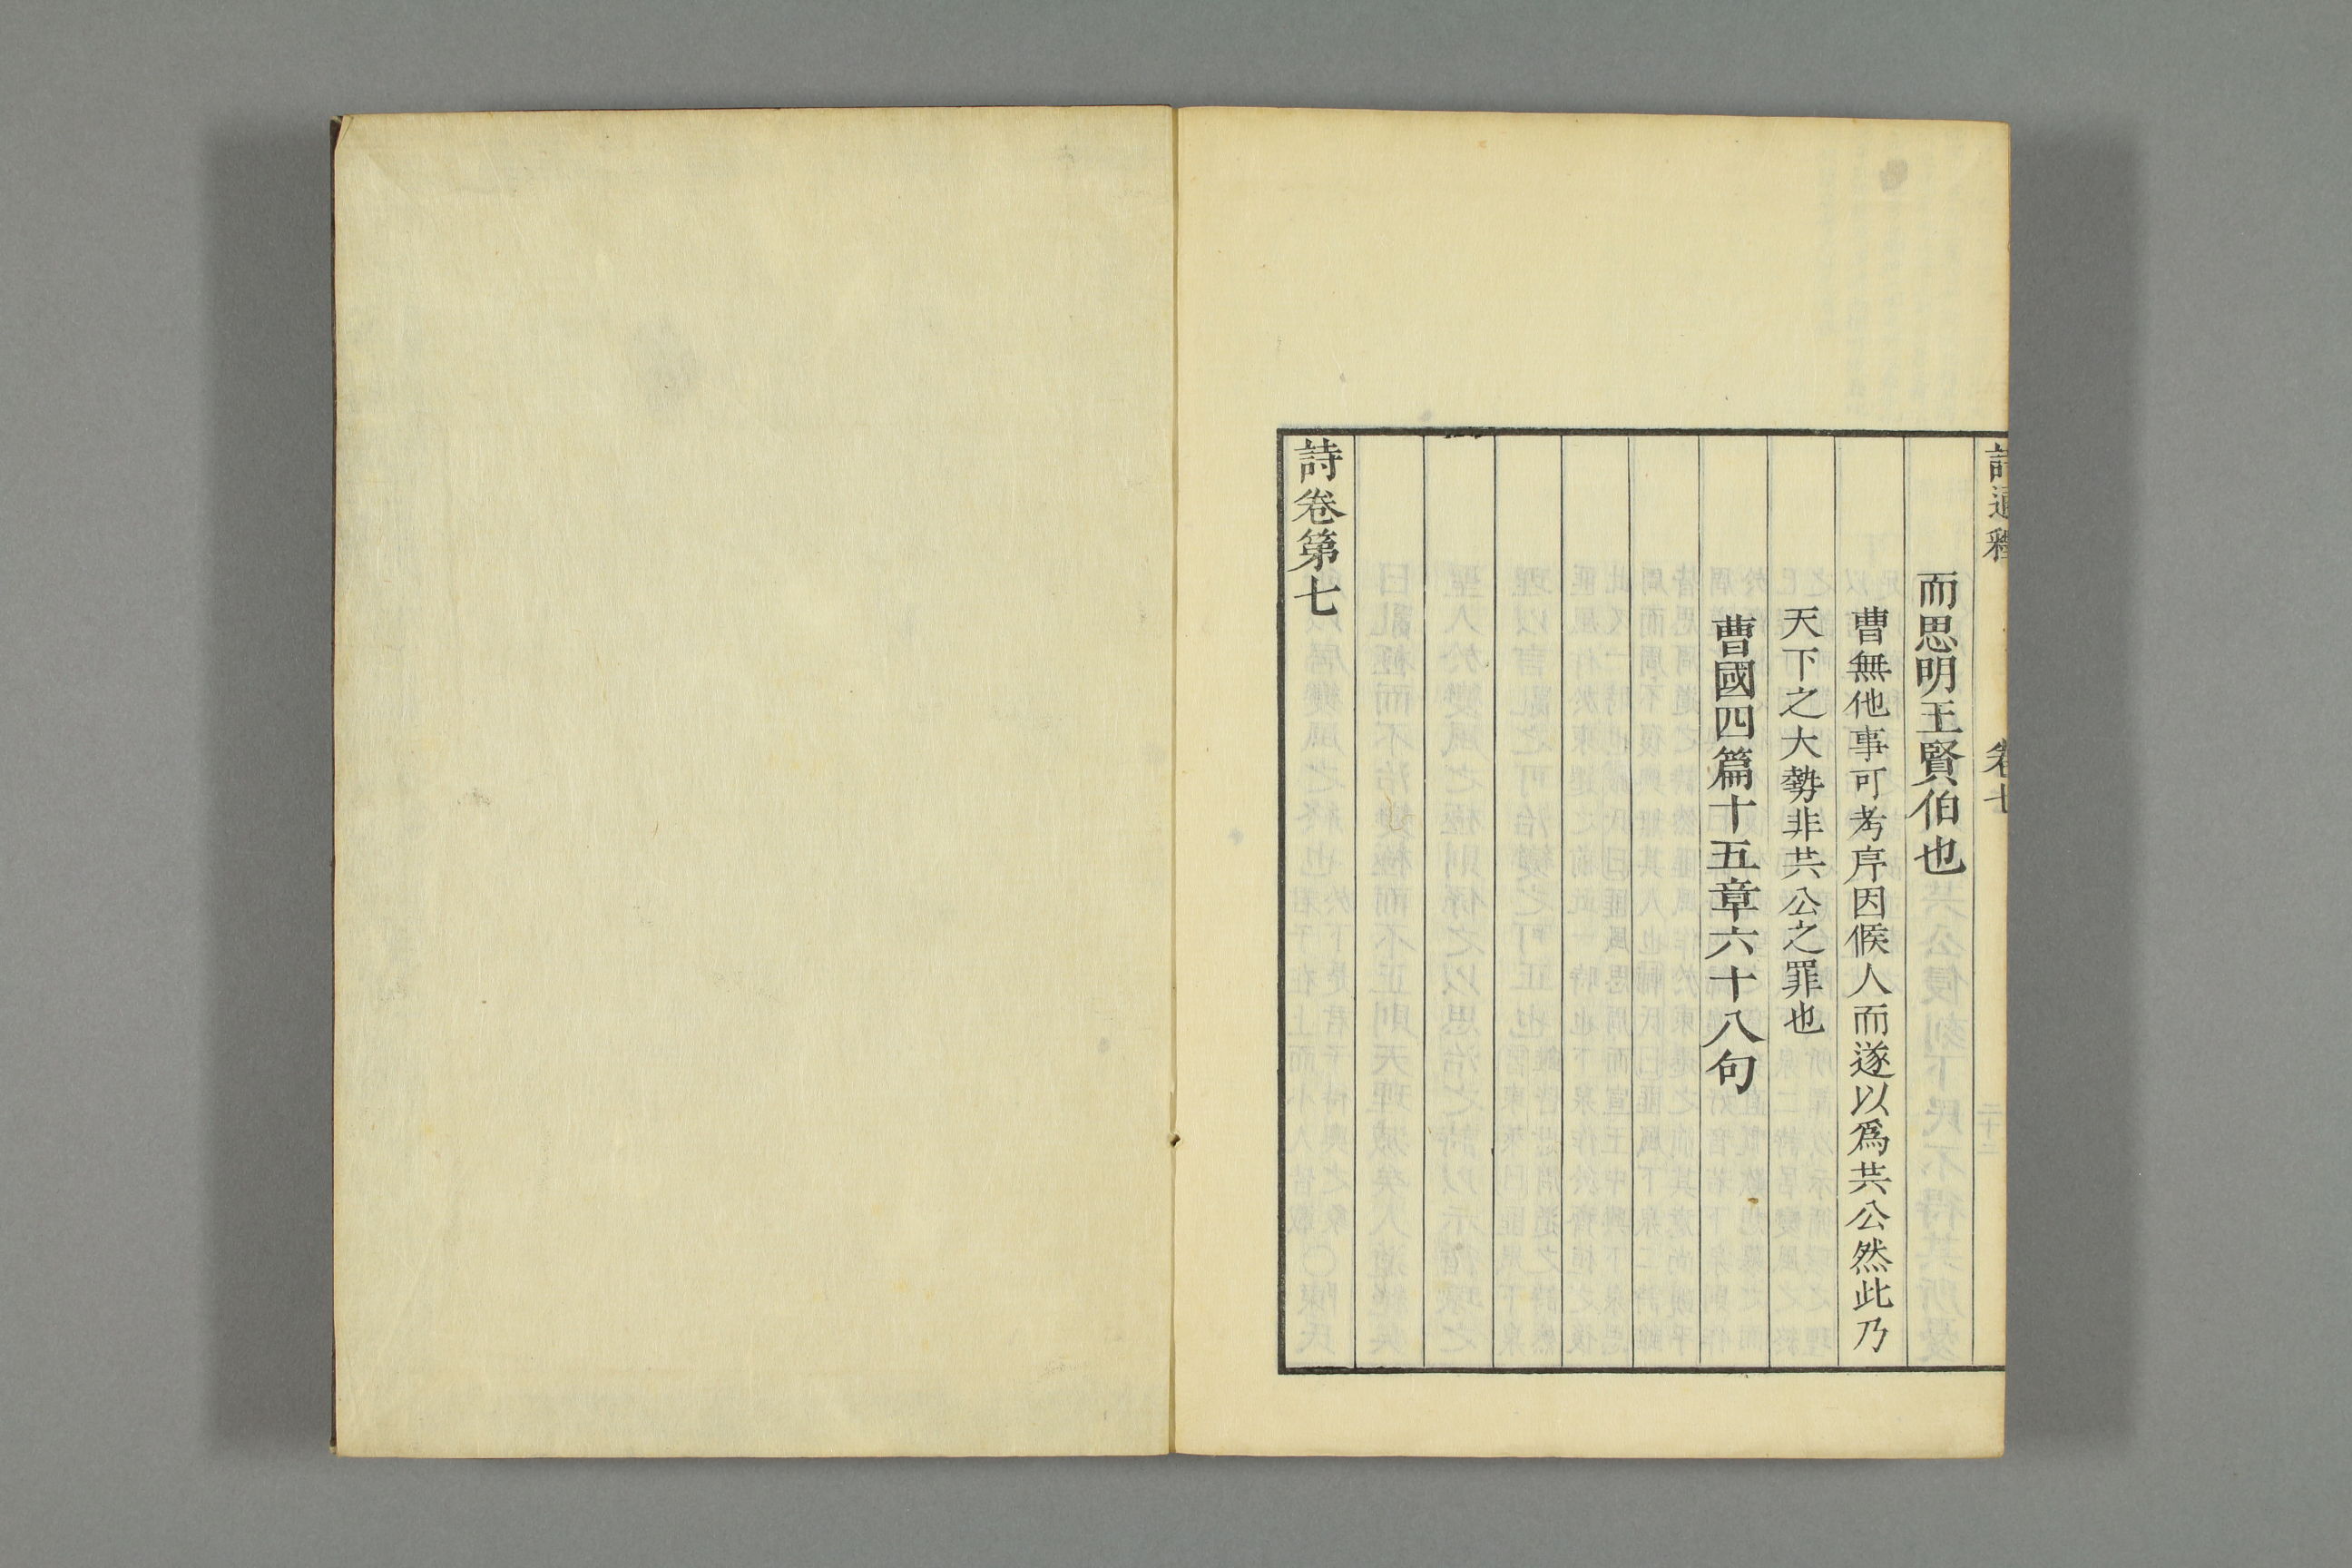 詩通釋 卷七
而思明王賢伯也
曹無他事可考序因候人而遂以爲共公然此乃
天下之大勢非共公之罪也
曹國四篇十五章六十八句
詩卷第七